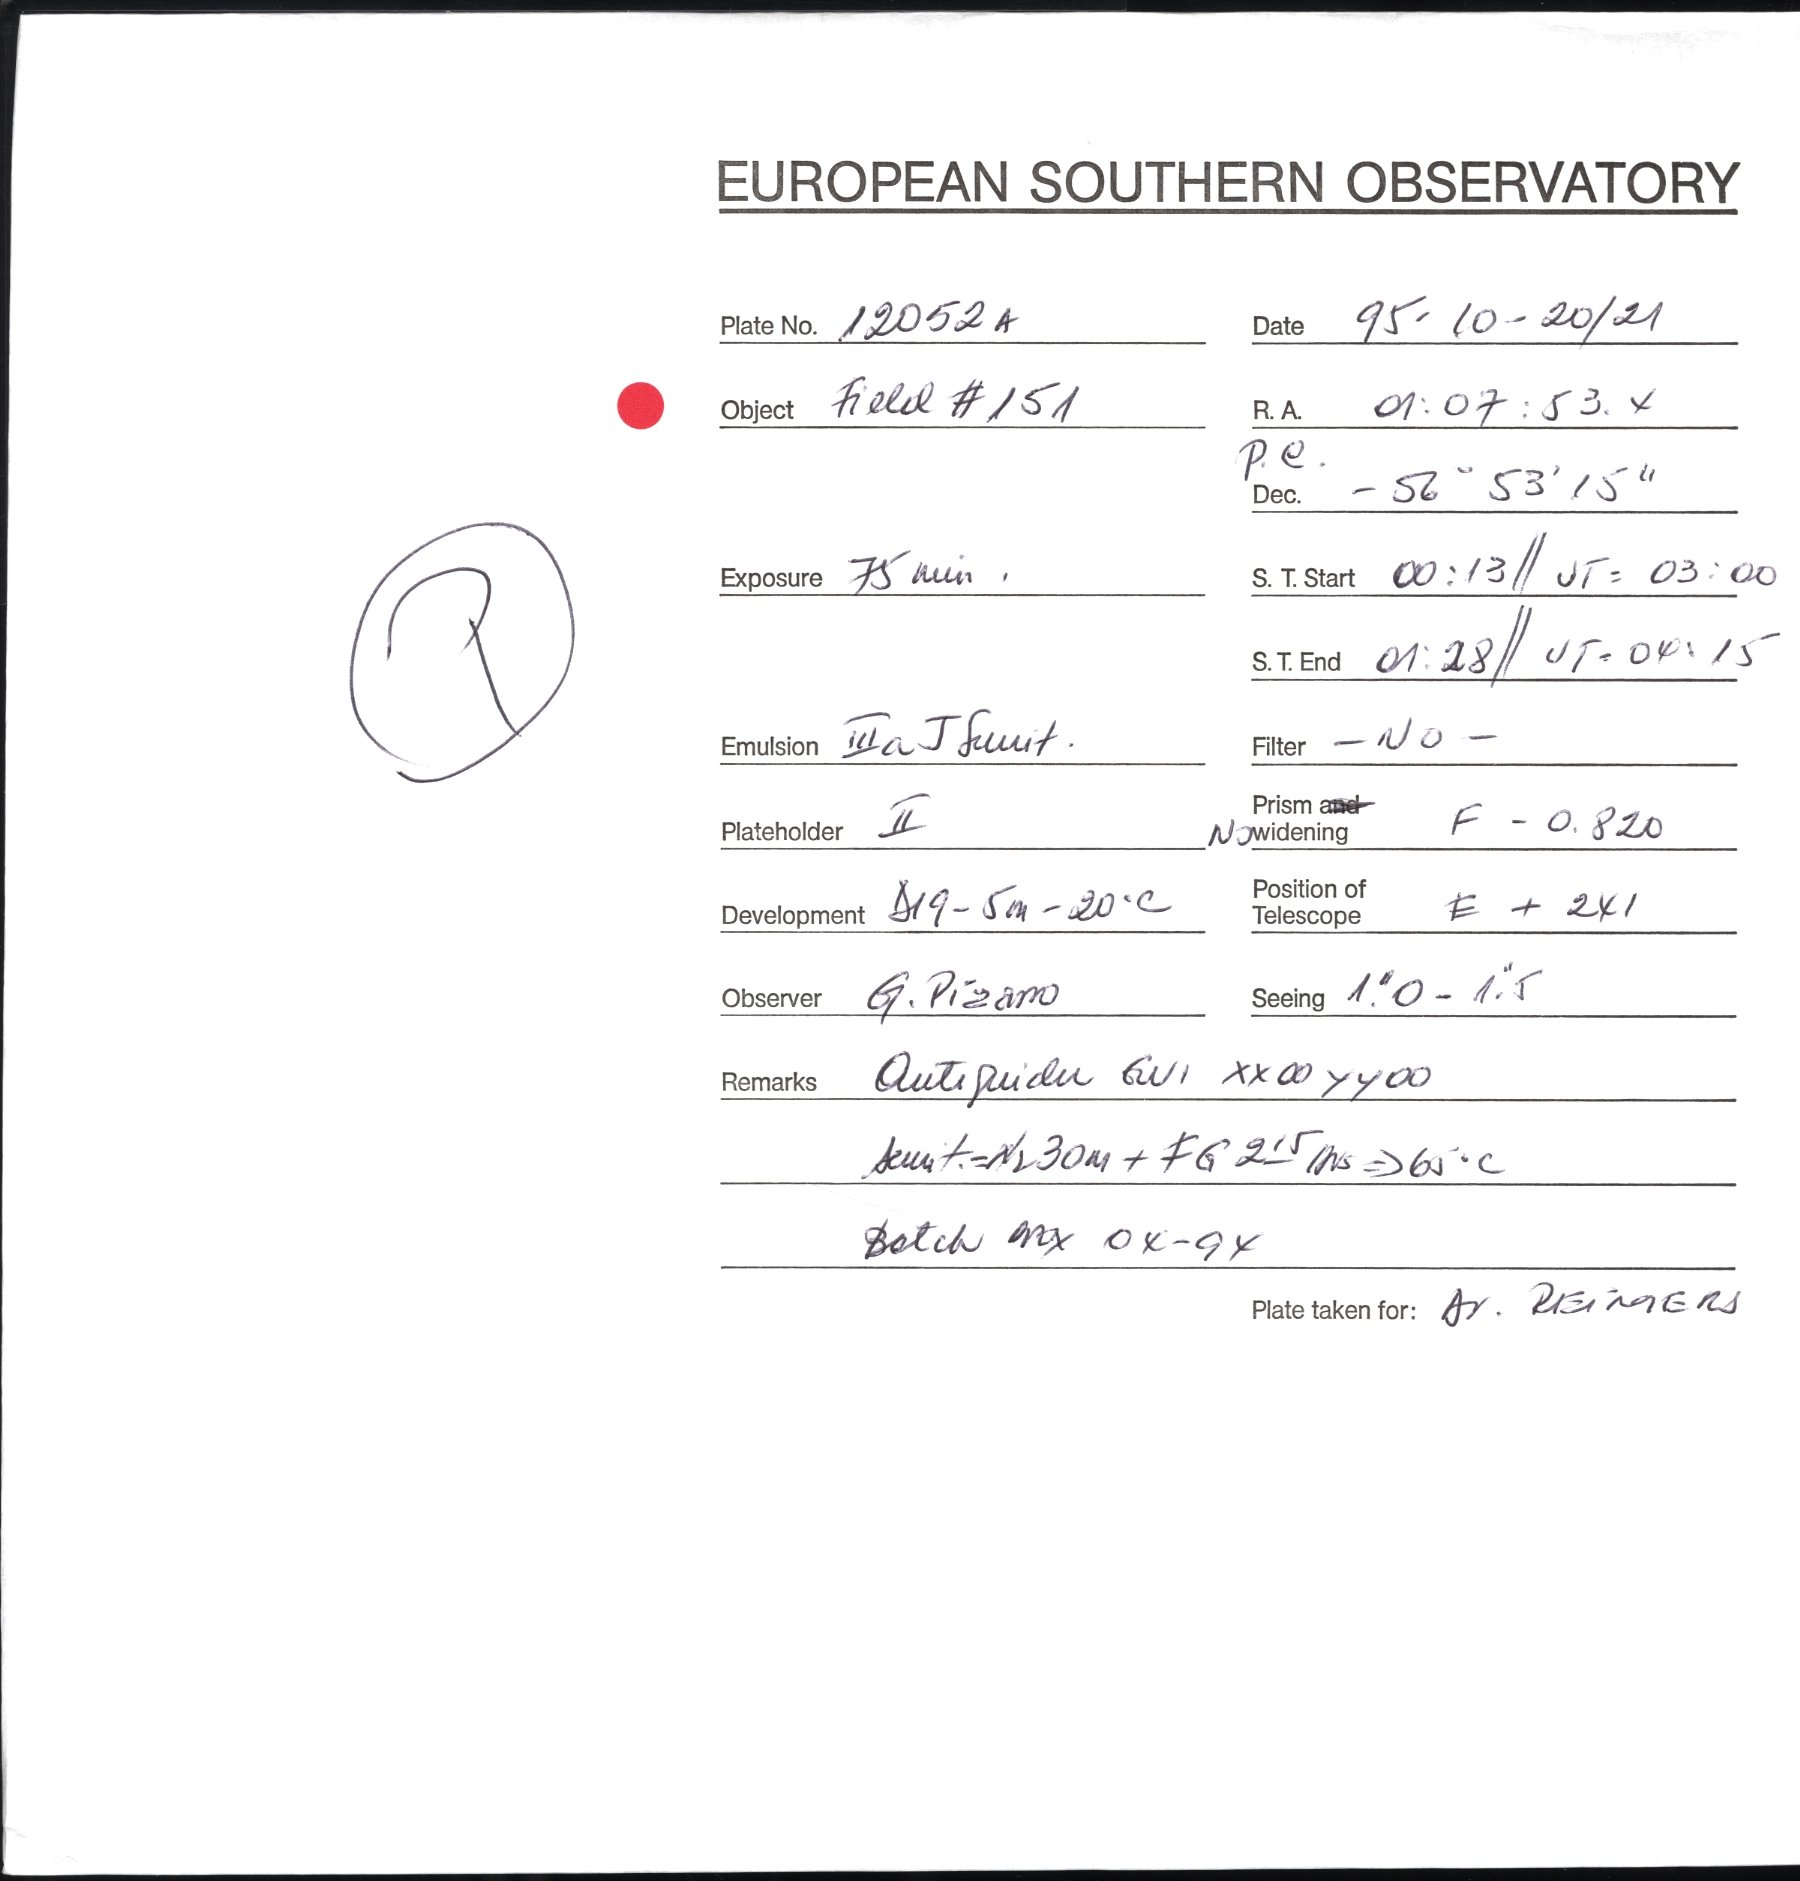 EUROPEAN SOUTHERN OBSERVATORY
Plate No. 12052A
Date 95-10-20/21
Object Field #151
R. A. 01:07:53.4
P.e.
Dec. -56° 53' 15"
Exposure 75 min.
S. T. Start 00:13// UT= 03:00
R
S. T. End 01:28// UT= 04:15
Emulsion IIIaJ
Filter -NO-
Plateholder II
Prism and
No widening F - 0.820
Development D19-5m-20°C
Position of
Telescope E + 241
Observer G. Pizarro
Seeing 1."0 - 1."5
Remarks Autoguider GV1 XX00 YY00
N2 30m + FG 2 15 hrs => 65°C
Batch 04-94
Plate taken for: Dr. REIMERS